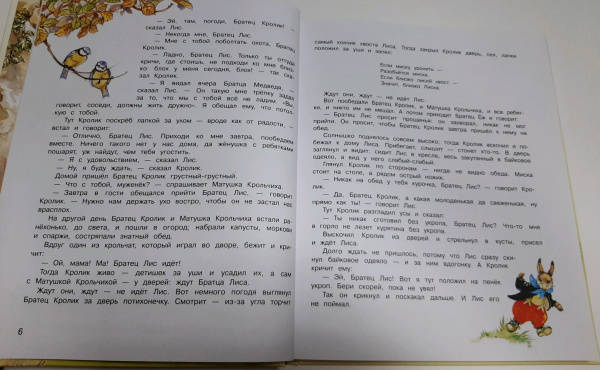 — Эй, там, погоди, Братец Кролик! —
сказал Лис.
— Некогда мне, Братец Лис.
— Мне с тобой поболтать охота, Братец
Кролик.
— Ладно, Братец Лис. Только ты оттуда
кричи, где стоишь, не подходи ко мне близ-
ко: блох у меня сегодня, блох! — так ска-
зал Кролик.
— Я видал вчера Братца Медведя, —
сказал Лис. — Он такую мне трёпку задал
за то, что мы с тобой всё не ладим. «Вы,
говорит, соседи, должны жить дружно». Я обещал ему, что потол-
кую с тобой.
Тут Кролик поскрёб лапкой за ухом — вроде как от радости, —
встал и говорит:
— Отлично, Братец Лис. Приходи ко мне завтра, пообедаем
вместе. Ничего такого нет у нас дома, да жёнушка с ребятками
пошарят, уж найдут, чем тебя угостить.
— Я с удовольствием, — сказал Лис.
— Ну, я буду ждать, — сказал Кролик.
Домой пришёл Братец Кролик грустный-грустный.
— Что с тобой, муженёк? — спрашивает Матушка Крольчиха.
— Завтра в гости обещался прийти Братец Лис, — говорит
Кролик. — Нужно нам держать ухо востро, чтобы он не застал нас
врасплох.
На другой день Братец Кролик и Матушка Крольчиха встали ра-
нёхонько, до света, и пошли в огород; набрали капусты, моркови
и спаржи, состряпали знатный обед.
Вдруг один из крольчат, который играл во дворе, бежит и кри-
чит:
— Ой, мама! Ма! Братец Лис идёт!
Тогда Кролик живо — детишек за уши и усадил их, а сам
с Матушкой Крольчихой — у дверей: ждут Братца Лиса.
Ждут они, ждут — не идёт Лис. Вот немного погодя выглянул
Братец Кролик за дверь потихонечку. Смотрит — из-за угла торчит
6
самый кончик хвоста Лиса. Тогда закрыл Кролик дверь, сел, лапки
положил за уши и запел:
Если миску уронить —
Разобьётся миска.
Если близко лисий хвост —
Значит, близко Лиска.
Ждут они, ждут, — не идёт Лис.
Вот пообедали Братец Кролик, и Матушка Крольчиха, и все ребят-
ки, и никто им не мешал. А потом приходит Братец Ёж и говорит:
— Братец Лис просит прощенья: он захворал, никак не мог
прийти. Он просит, чтобы Братец Кролик завтра пришёл к нему на
обед.
Солнышко поднялось совсем высоко; тогда Кролик вскочил и по-
бежал к дому Лиса. Прибегает, слышит — стонет кто-то. В дверь
заглянул и видит: сидит Лис в кресле, весь закутанный в байковое
одеяло, а вид у него слабый-слабый.
Глянул Кролик по сторонам — нигде не видно обеда. Миска
стоит на столе, а рядом острый ножик.
— Никак на обед у тебя курочка, Братец Лис? — говорит Кро-
лик.
— Да, Братец Кролик, а какая молоденькая да свеженькая, ну
прямо как ты! — говорит Лис.
Тут Кролик разгладил усы и сказал:
— Ты никак сготовил без укропа, Братец Лис? Что-то мне
в горло не лезет курятина без укропа.
Выскочил Кролик из дверей и стрельнул в кусты, присел
и ждёт Лиса.
Долго ждать не пришлось, потому что Лис сразу ски-
нул байковое одеяло — и за ним вдогонку. А Кролик
кричит ему:
— Эй, Братец Лис! Вот я тут положил на пенёк
укроп. Бери скорей, пока не увял!
Так он крикнул и поскакал дальше. И Лис его
не поймал.